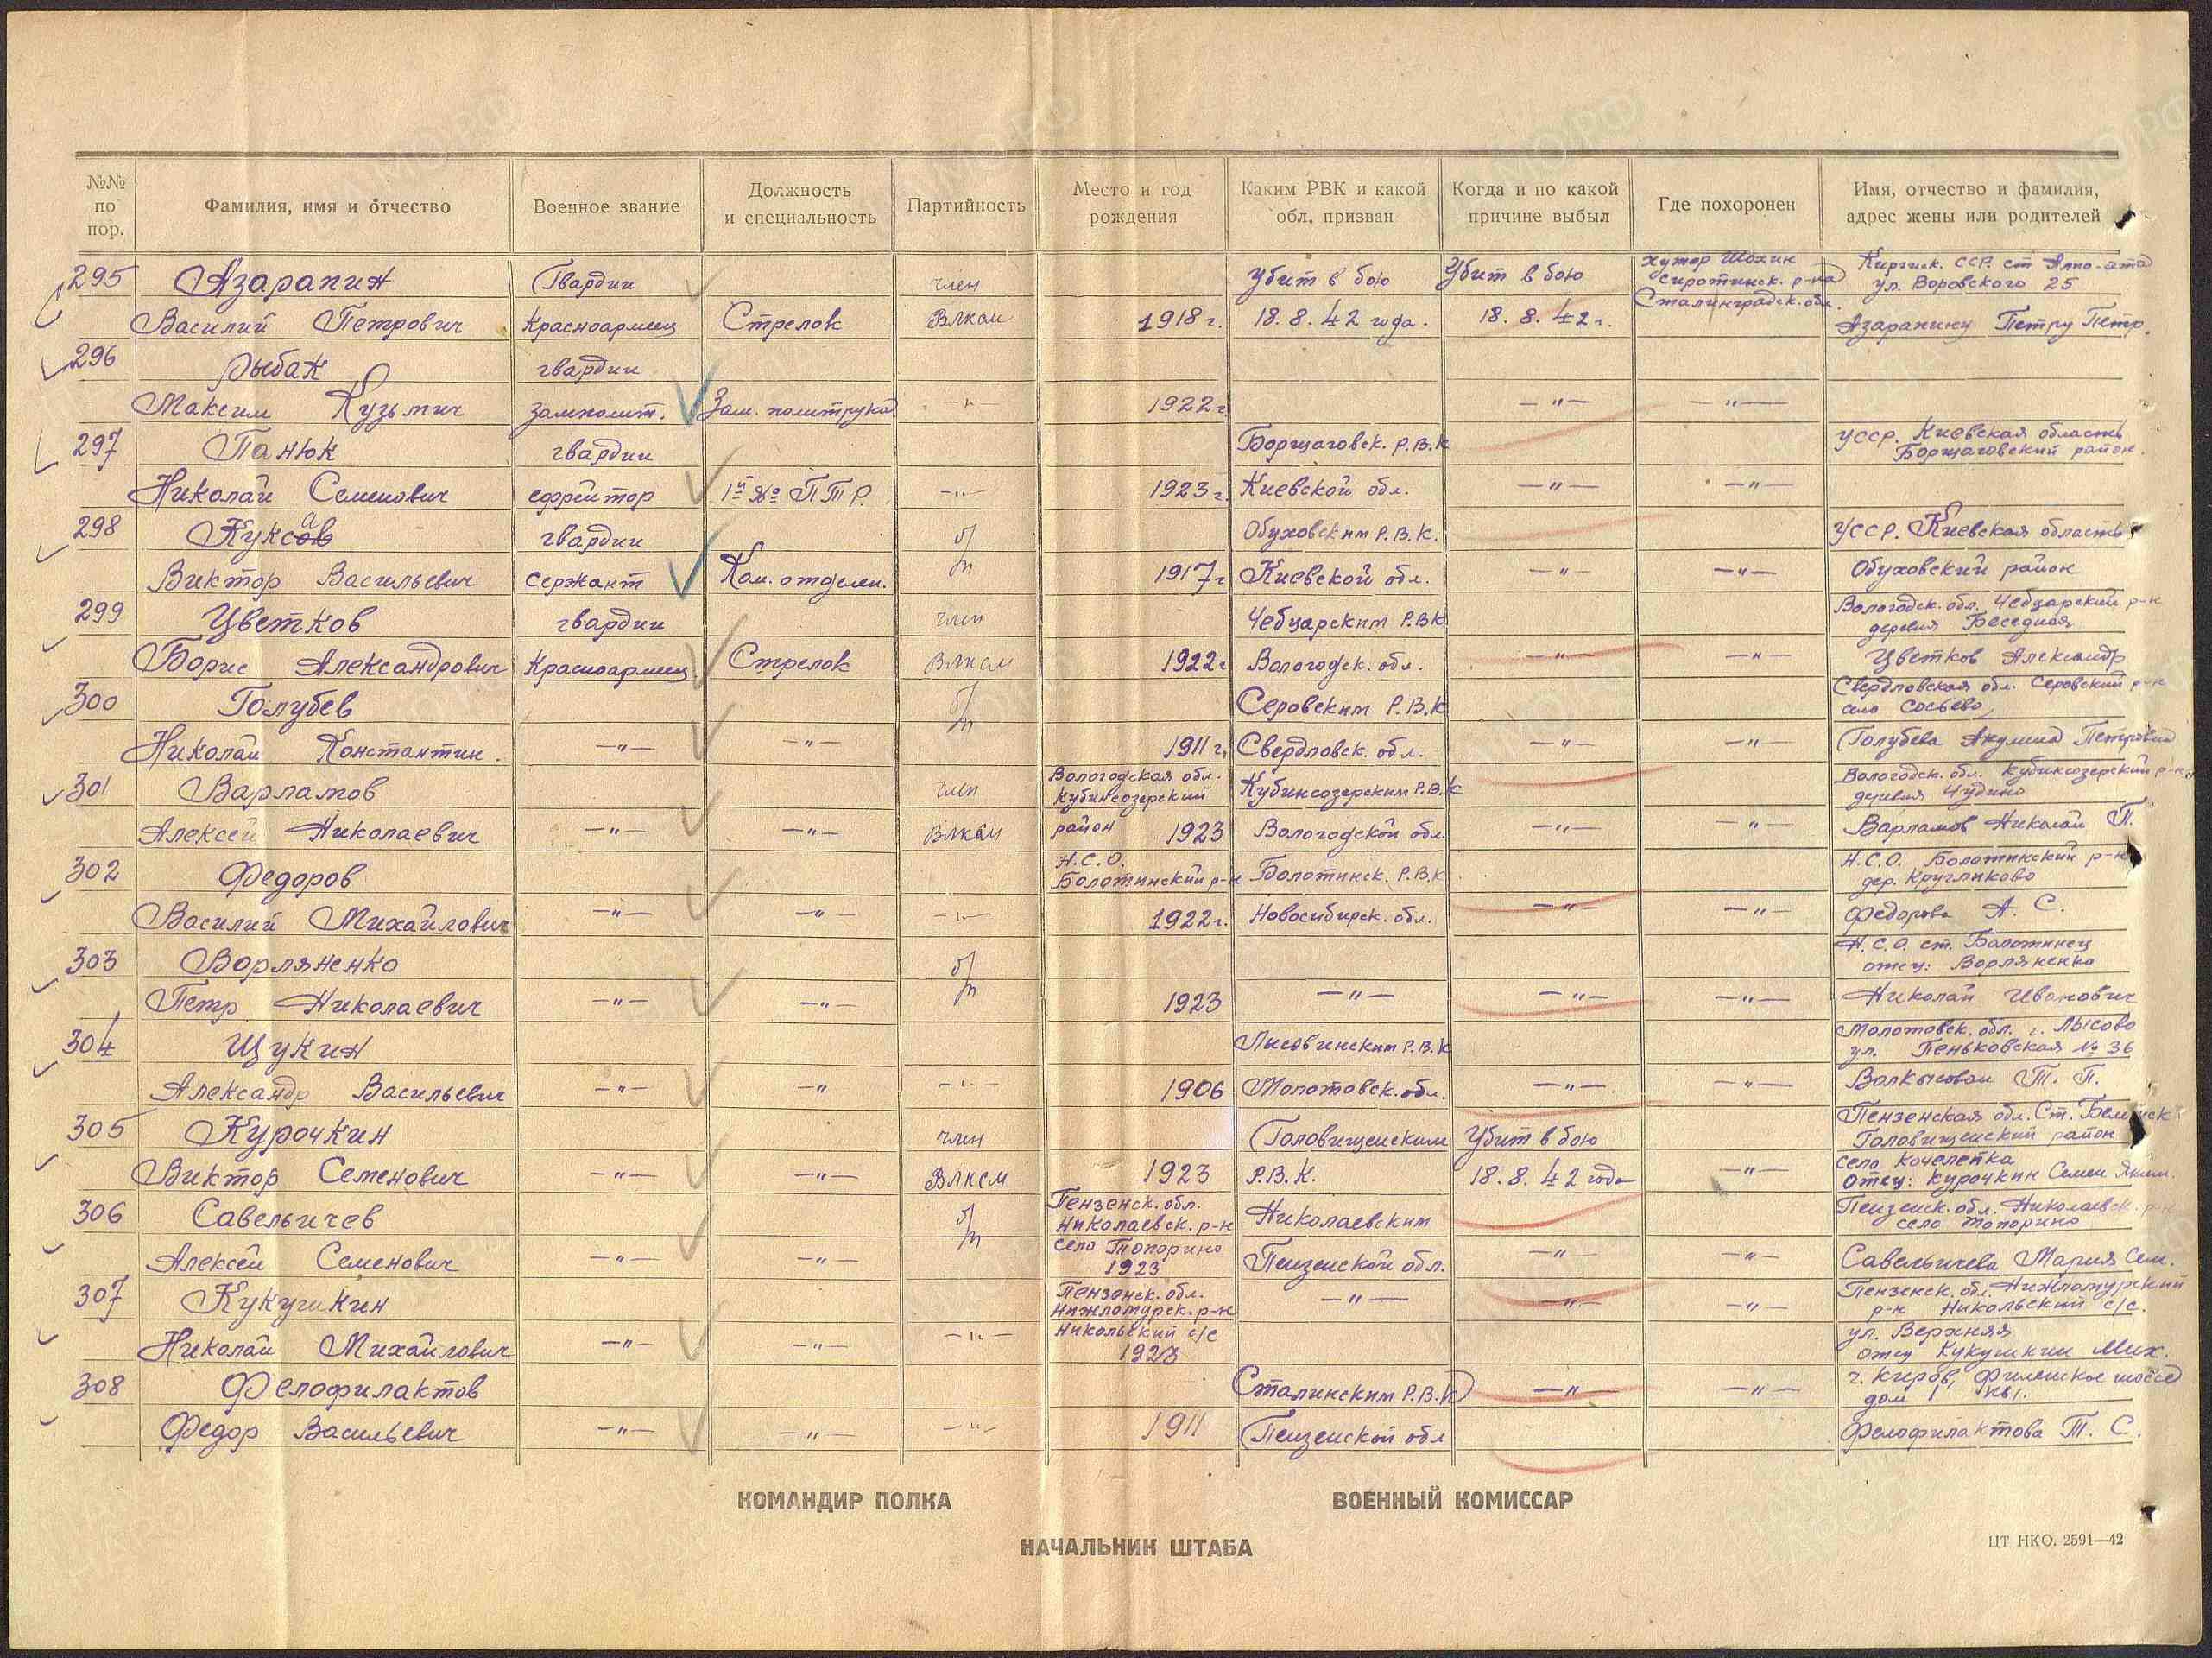 №№ по пор.
Фамилия, имя и отчество
Военное звание
Должность и специальность
Партийность
Место и год рождения
Каким РВК и какой обл. призван
Когда и по какой причине выбыл
Где похоронен
Имя, отчество и фамилия, адрес жены или родителей
295 Азарапин Гвардии член Убит в бою Убит в бою хутор Шохин Киргизк. ССР. ст Ално-ата
Сиротинск. р-на ул. Воровского 25
Сталинградск. обл.
Василий Петрович Красноармеец Стрелок Влксм 1918 г. 18.8.42 года. 18.8.42 г. Азарапину Петру Петр.
296 Рыбак гвардии
Максим Кузьмич замполит. Зам. политрука —"— 1922 г —"— —"—
297 Панюк гвардии Борщаговск. Р.В.К УССР. Киевская область
Борщаговский район.
Николай Семенович ефрейтор 1й № ПТР. —"— 1923 г. Киевской обл. —"— —"—
298 Куксав гвардии б/п Обуховским Р.В.К. УССР. Киевская область
Виктор Васильевич Сержант Ком. отделен. 1917 г Киевской обл. —"— —"— Обуховский район
299 Цветков гвардии член Чебцарским Р.В.К Вологодск. обл. Чебцарский р-н
деревня Беседная
Борис Александрович Красноармеец Стрелок Влксм 1922 г Вологодск. обл. —"— —"— Цветков Александр
300 Голубев б/п Серовским Р.В.К Свердловская обл. Серовский р-н
село Сосьево,
Николай Константин. —"— —"— 1911 г. Свердловск. обл. —"— —"— Голубева Акулина Петровна
301 Варламов член Вологодская обл. Кубинсозерский Кубинсозерским Р.В.К Вологодск. обл. Кубинсозерский р-н
деревня Чудино
Алексей Николаевич —"— —"— Влксм район 1923 Вологодской обл. —"— —"— Варламов Николай П.
302 Федоров Н.С.О. Болотинский р-н Болотинск. Р.В.К Н.С.О. Болотинский р-н
дер. Кругликово
Василий Михайлович —"— —"— —"— 1922 г. Новосибирск. обл. —"— —"— Федорова А. С.
303 Ворляненко б/п Н.С.О. ст. Болотинец
отец: Ворляненко
Петр Николаевич —"— —"— 1923 —"— —"— —"— Николай Иванович
304 Щукин Лысовинским Р.В.К Молотовск. обл. г. Лысово
ул. Пеньковская № 36
Александр Васильевич —"— —" —"— 1906 Молотовск. обл. —"— —"— Т. П.
305 Курочкин член Головищенским Убит в бою Пензенская обл. Ст.
Головищенский район
Виктор Семенович —"— —"— Влксм 1923 Р.В.К. 18.8.42 года —"— село Кочелейка
отец: Курочкин Семен
306 Савельичев б/п Пензенск. обл. Николаевск. р-н Николаевским Пензенск. обл. Николаевск. р-н
село Топорино
Алексей Семенович —"— —"— село Топорино 1923 Пензенской обл. —"— —"— Савельичева Мария Сем.
307 Кукушкин Пензенск. обл. Нижломурск. р-н —"— —"— —"— Пензенск. обл. Нижломурский
р-н Никольский с/с.
Николай Михайлович —"— —"— —"— Никольский с/с 1923 ул. Верхняя
отец Кукушкин Мих.
308 Фелофилактов Сталинским Р.В.К —"— —"— г. Киров, Филейское шоссе
дом 1 кв 1.
Федор Васильевич —"— —"— —"— 1911 Пензенской обл Фелофилактова Т. С.
КОМАНДИР ПОЛКА
ВОЕННЫЙ КОМИССАР
НАЧАЛЬНИК ШТАБА
ЦТ НКО. 2591—42